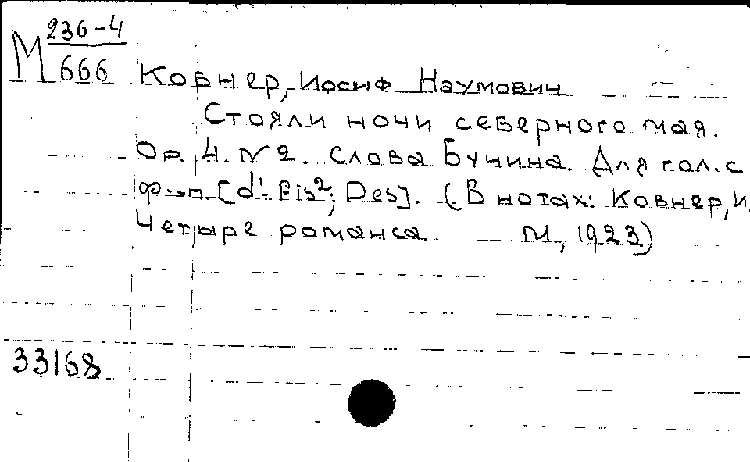 236-4
М 666 Ковнер, Иосиф Наумович
Стояли ночи северного мая.
Ор. 4. №2. Слова Бунина. Для гол. с
ф-п. [d¹-fis²; Des]. (В нотах: Ковнер, И.
Четыре романса. М., 1923)
33168